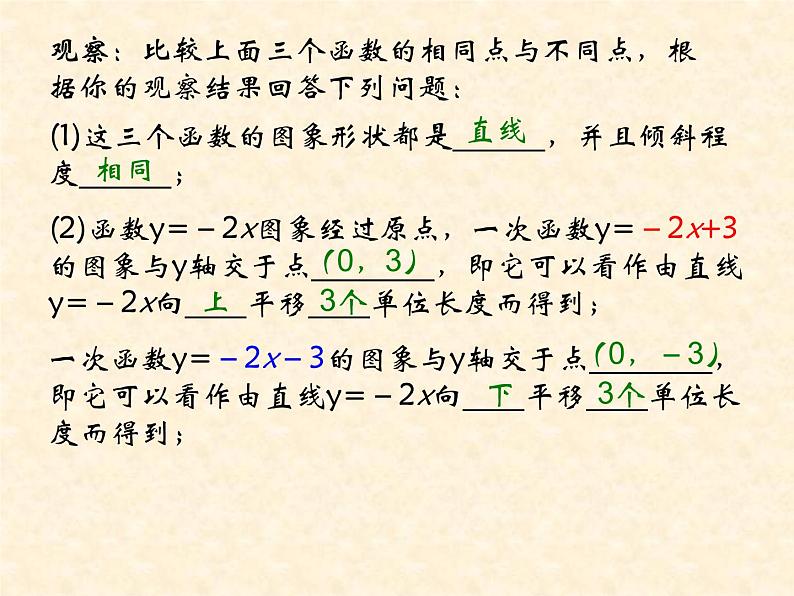 观察：比较上面三个函数的相同点与不同点，根
据你的观察结果回答下列问题：
(1)这三个函数的图象形状都是直线，并且倾斜程
度相同；
(2)函数y=－2x图象经过原点，一次函数y=－2x+3
的图象与y轴交于点(0，3)，即它可以看作由直线
y=－2x向上平移3个单位长度而得到；
一次函数y=－2x－3的图象与y轴交于点(0，－3)，
即它可以看作由直线y=－2x向下平移3个单位长
度而得到；